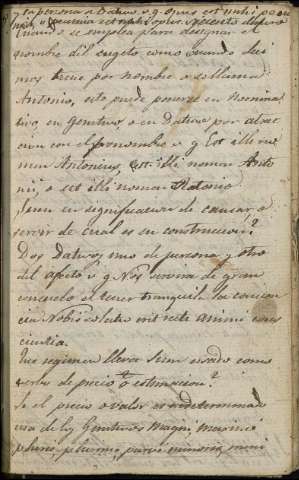 ta persona a Dativo v. g. Opus est mihi pecu
nia,
Cuando se emplea para designar el
nombre del sugeto como cuando deci
mos tiene por nombre o se llama
Antonio, este puede ponerse en Nomina
tivo, en Genitivo o en Dativo por atrac
cion con el pronombre v. g. Est illi no
men Antonius, est illi nomen Anto
nii, o est illi nomen Antonio.
Sum en significacion de causar o
servir de cual es su construccion?
Dos Dativos, uno de persona y otro
del afecto v. g. Nos servira de gran
consuelo el tener tranquila la concien
cia Nobis solatio erit recte animi cons
cientia.
Que regimen lleva Sum usado como
verbo de precio o estimacion?
Si el precio o valor es indeterminado
usa de los Genitivos Magni, maximi
pluris, plurimi, parvi minoris, mini